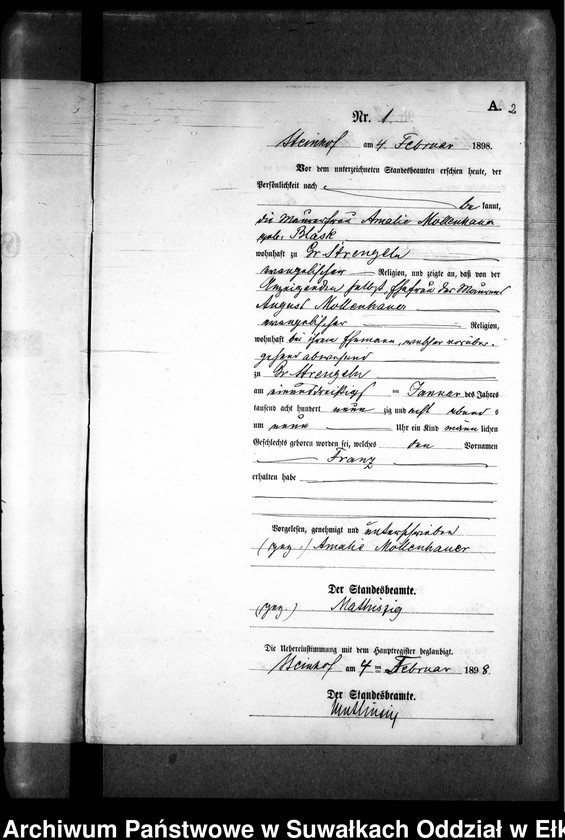 A. 2
Nr. 1
Steinhof am 4. Februar 1898.
Vor dem unterzeichneten Standesbeamten erschien heute, der
Persönlichkeit nach
be kannt,
die Maurerfrau Amalie Mollenhauer
geb. Blask
wohnhaft zu Gr Strengeln
evangelischer Religion, und zeigte an, daß von der
Anzeigenden selbst, Ehefrau des Maurers
August Mollenhauer
evangelischer Religion,
wohnhaft bei ihrem Ehemann, welcher vorüber-
gehend abwesend
zu Gr Strengeln
am einunddreißigs ten Januar des Jahres
tausend acht hundert neun zig und acht abends
um neun Uhr ein Kind männ lichen
Geschlechts geboren worden sei, welches den Vornamen
Franz
erhalten habe
Vorgelesen, genehmigt und unterschrieben
(gez.) Amalie Mollenhauer
Der Standesbeamte.
(gez.) Mathiszig
Die Uebereinstimmung mit dem Hauptregister beglaubigt.
Steinhof am 4 ten Februar 1898.
Der Standesbeamte.
Archiwum Państwowe w Suwałkach Oddział w Ełk